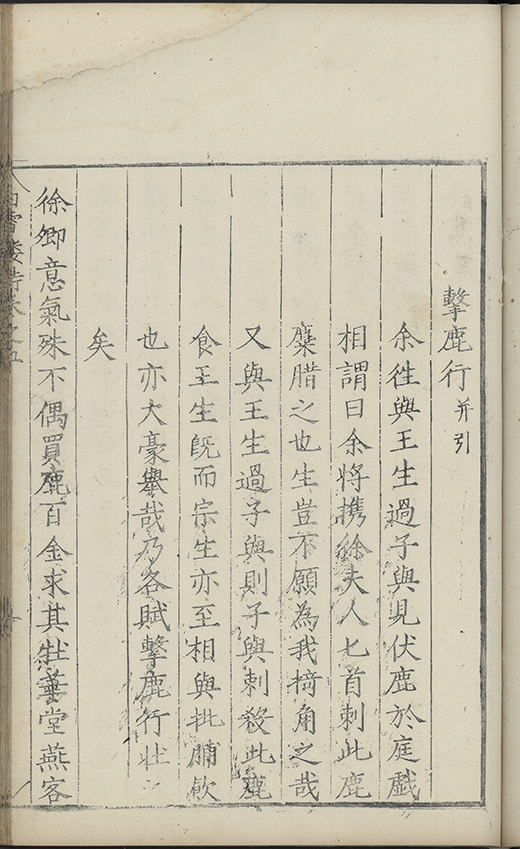 擊鹿行并引
余徃與王生過子與見伏鹿於庭戲
相謂曰余將携徐夫人匕首刺此鹿
麋腊之也生豈不願為我掎角之哉
又與王生過子與則子與刺殺此鹿
食王生既而宗生亦至相與批腩飲
也亦大豪舉哉乃各賦擊鹿行壯之
矣
徐卿意氣殊不偶買鹿百金求其牡華堂燕客
白雪樓詩卷之五